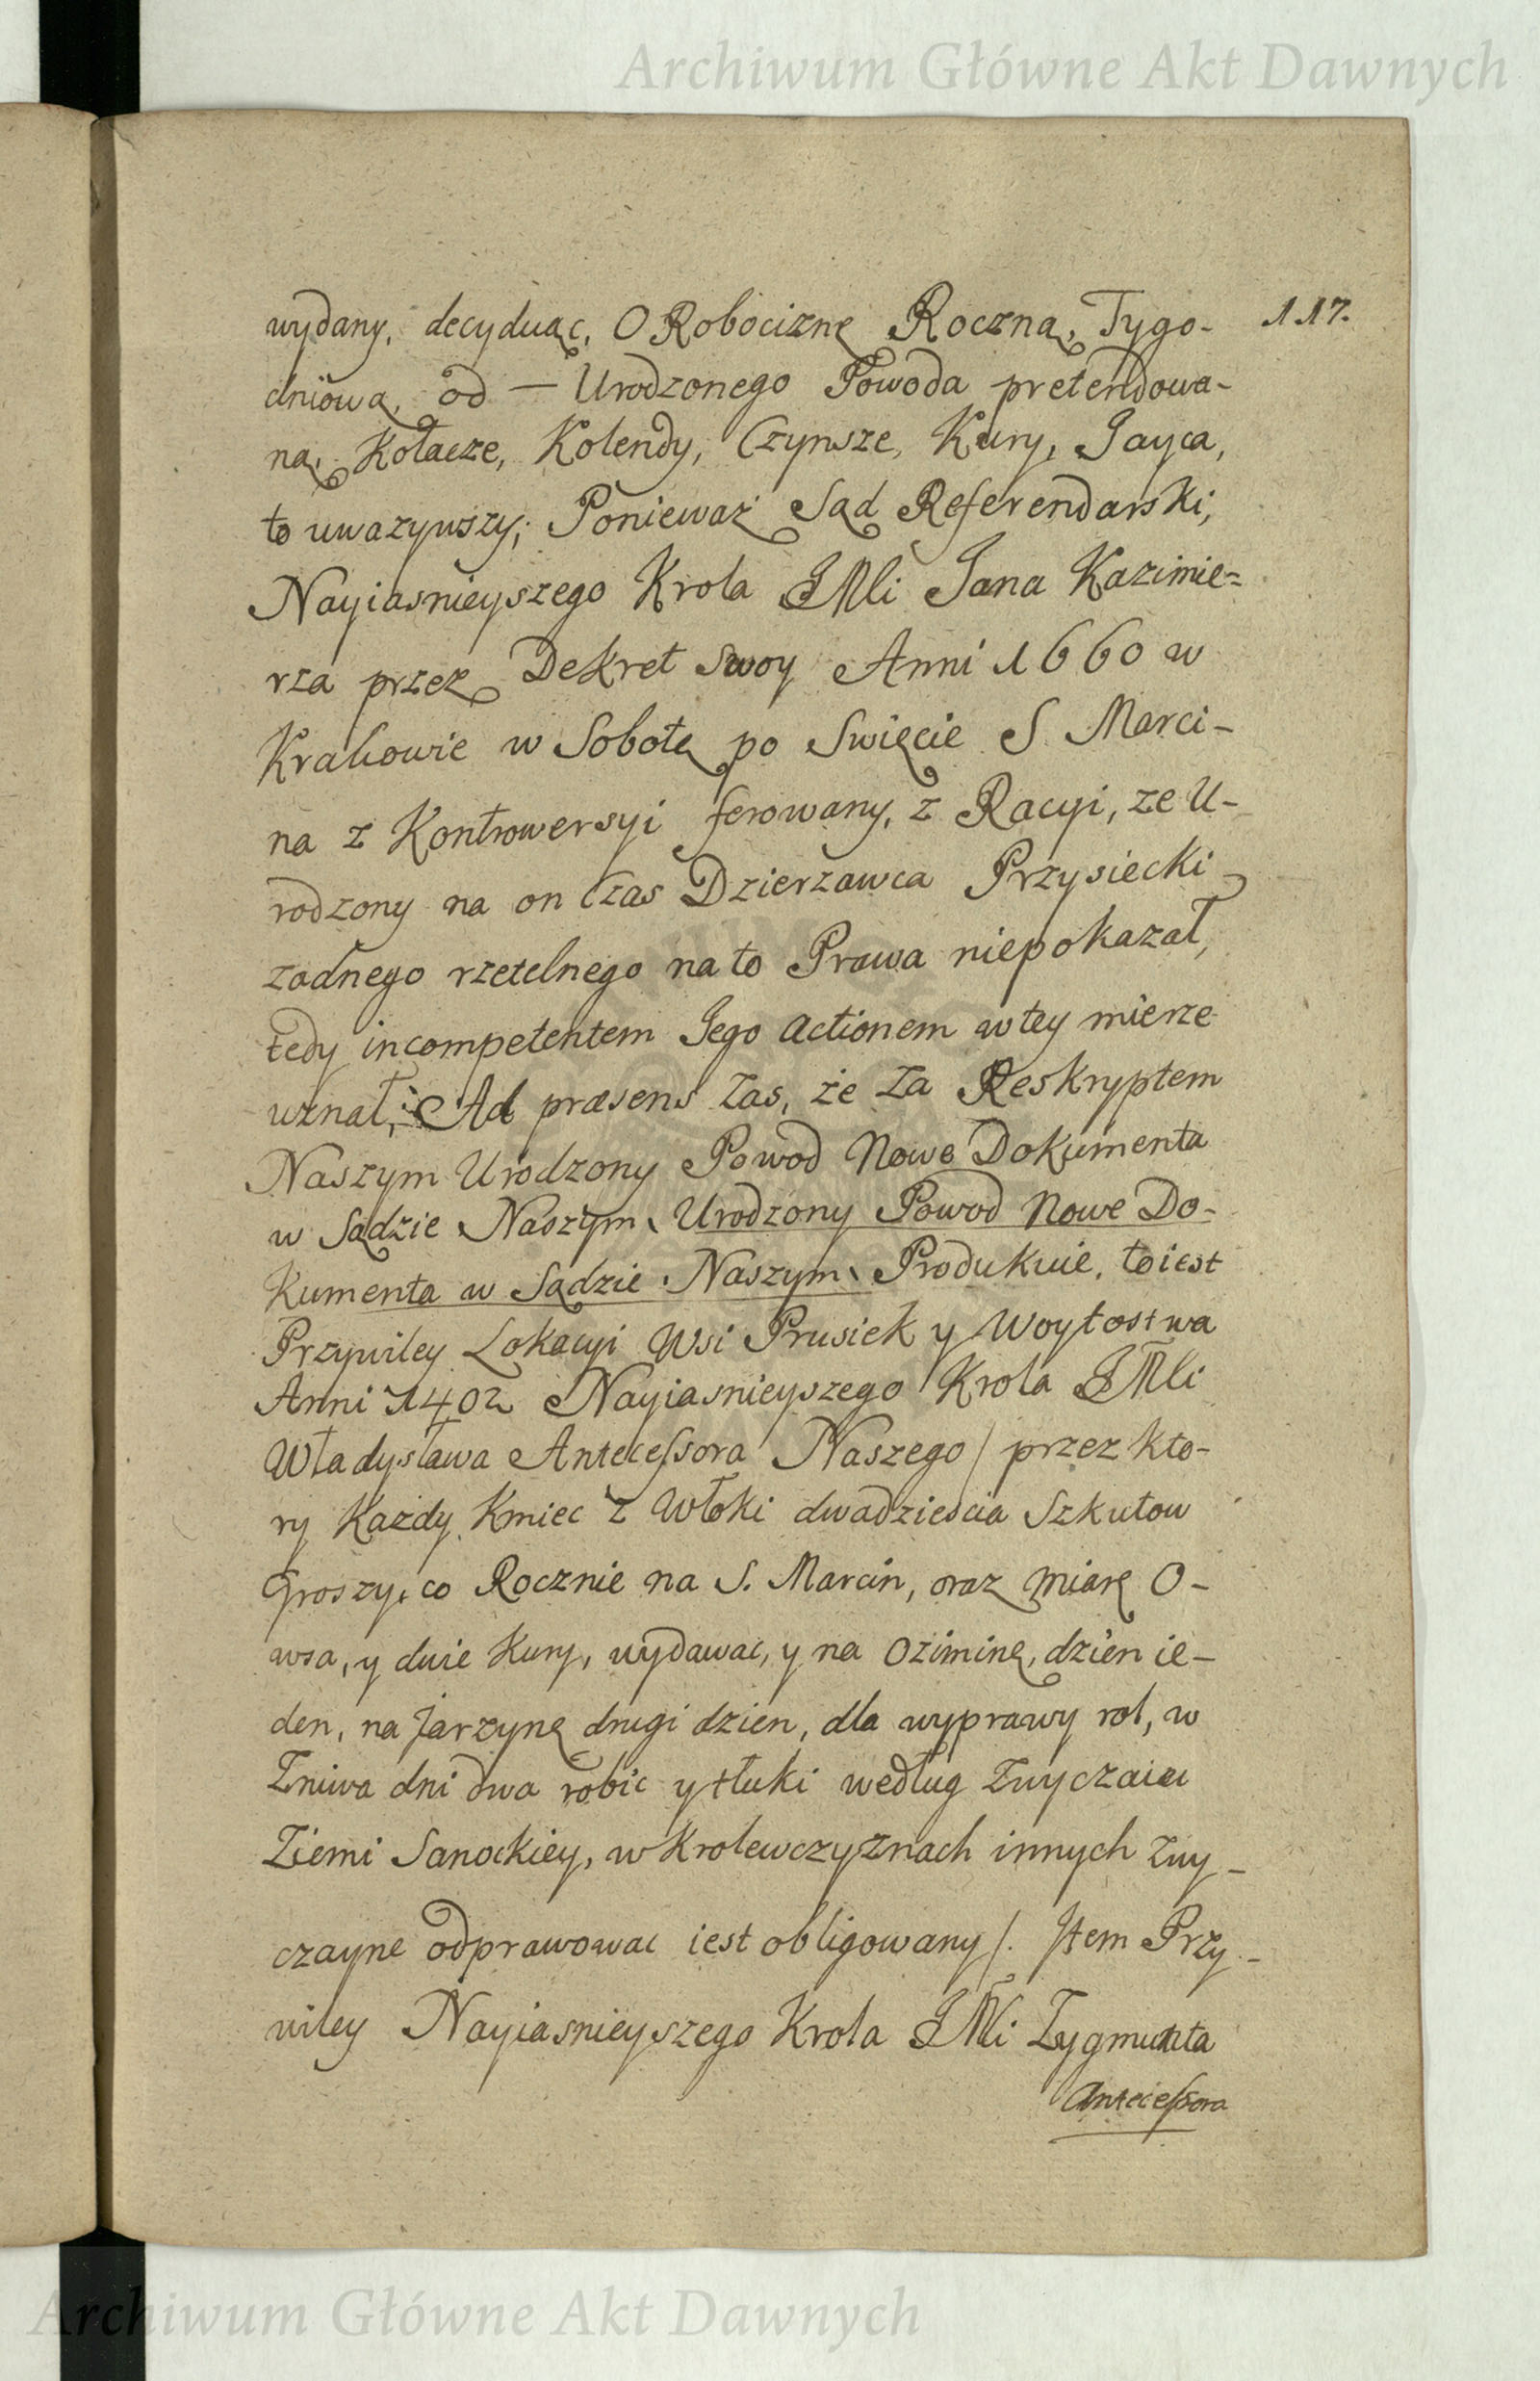 Archiwum Główne Akt Dawnych
117.
wydany, decyduąc, O Robociznę Roczną, Tygo-
dniową, od — Urodzonego Powoda pretendowa-
ną, Kołacze, Kolendy, Czynsze, Kury, Jayca,
to uwazywszy; Ponieważ Sąd Referendarski,
Nayiasnieyszego Krola JMli Jana Kazimie=
rza przez Dekret swoy Anni 1660 w
Krakowie w Sobotę po Swięcie S. Marci-
na z Kontrowersyi ferowany, z Racyi, ze U-
rodzony na on Czas Dzierzawca Przysiecki
zadnego rzetelnego na to Prawa niepokazał,
tedy incompetentem Jego actionem w tey mierze
uznał, Ad præsens zas, że za Reskryptem
Naszym Urodzony Powod Nowe Dokumenta
w Sądzie Naszym, Urodzony Powod Nowe Do-
kumenta w Sądzie Naszym, Produkuie, to iest
Przywiley Lokacyi Wsi Prusiek y Woytostwa
Anni 1402 Nayiasnieyszego Krola JMli
Władysława Antecessora Naszego / przez kto-
ry Kazdy Kmiec z Włoki dwadziescia Szkutow
Groszy, co Rocznie na S. Marcin, oraz miarę O-
wsa, y dwie Kury, wydawac, y na Oziminę, dzien ie-
den, na Jarzynę drugi dzien, dla wyprawy rol, w
Zniwa dni dwa robic y tłuki według Zwyczaiu
Ziemi Sanockiey, w Krolewczyznach innych Zwy-
czayne odprawowac iest obligowany /. Item Przy-
wiley Nayiasnieyszego Krola JMli Zygmunta
Antecessora
Archiwum Główne Akt Dawnych